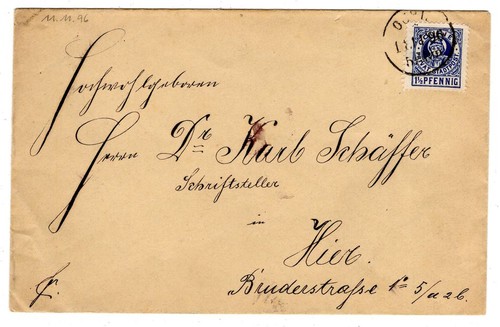 11.11.96
1½ PFENNIG
Hochwohlgeboren
Herrn Dr Karl Schäffer
Schriftsteller
in
Hier.
Bruderstrasse No 5/a2b.
Fr.